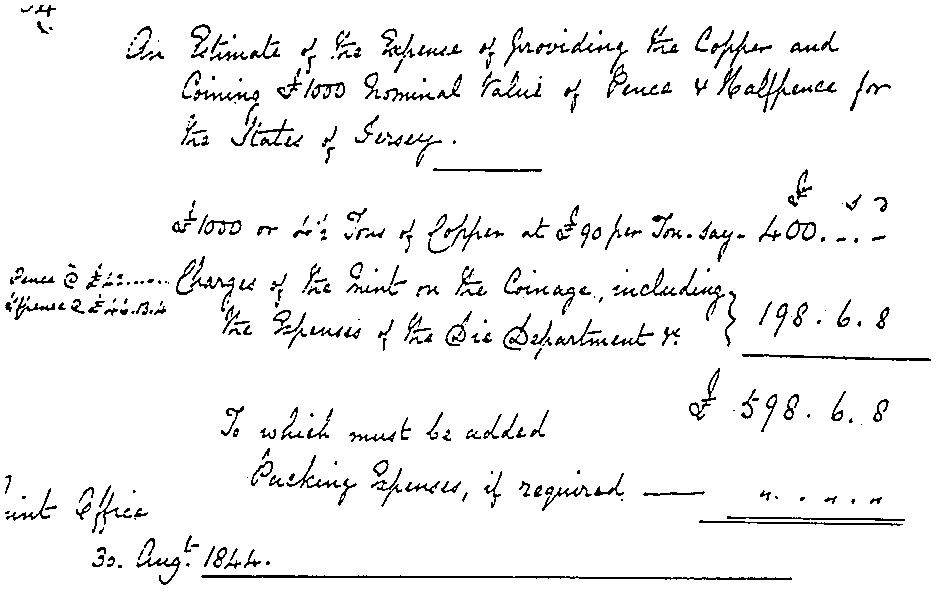 An Estimate of the Expense of providing the Copper and
Coining £1000 Nominal Value of Pence & Halfpence for
the States of Jersey.
£ s d
£1000 or 4½ Tons of Copper at £90 per Ton - say - 400. - . -
Pence @ £42...... Charges of the Mint on the Coinage, including
½pence @ £44.13.4 the Expenses of the Die Department &c } 198 . 6 . 8
£ 598 . 6 . 8
To which must be added
Packing Expenses, if required. — " . . " . "
Mint Office
30. Augt. 1844.